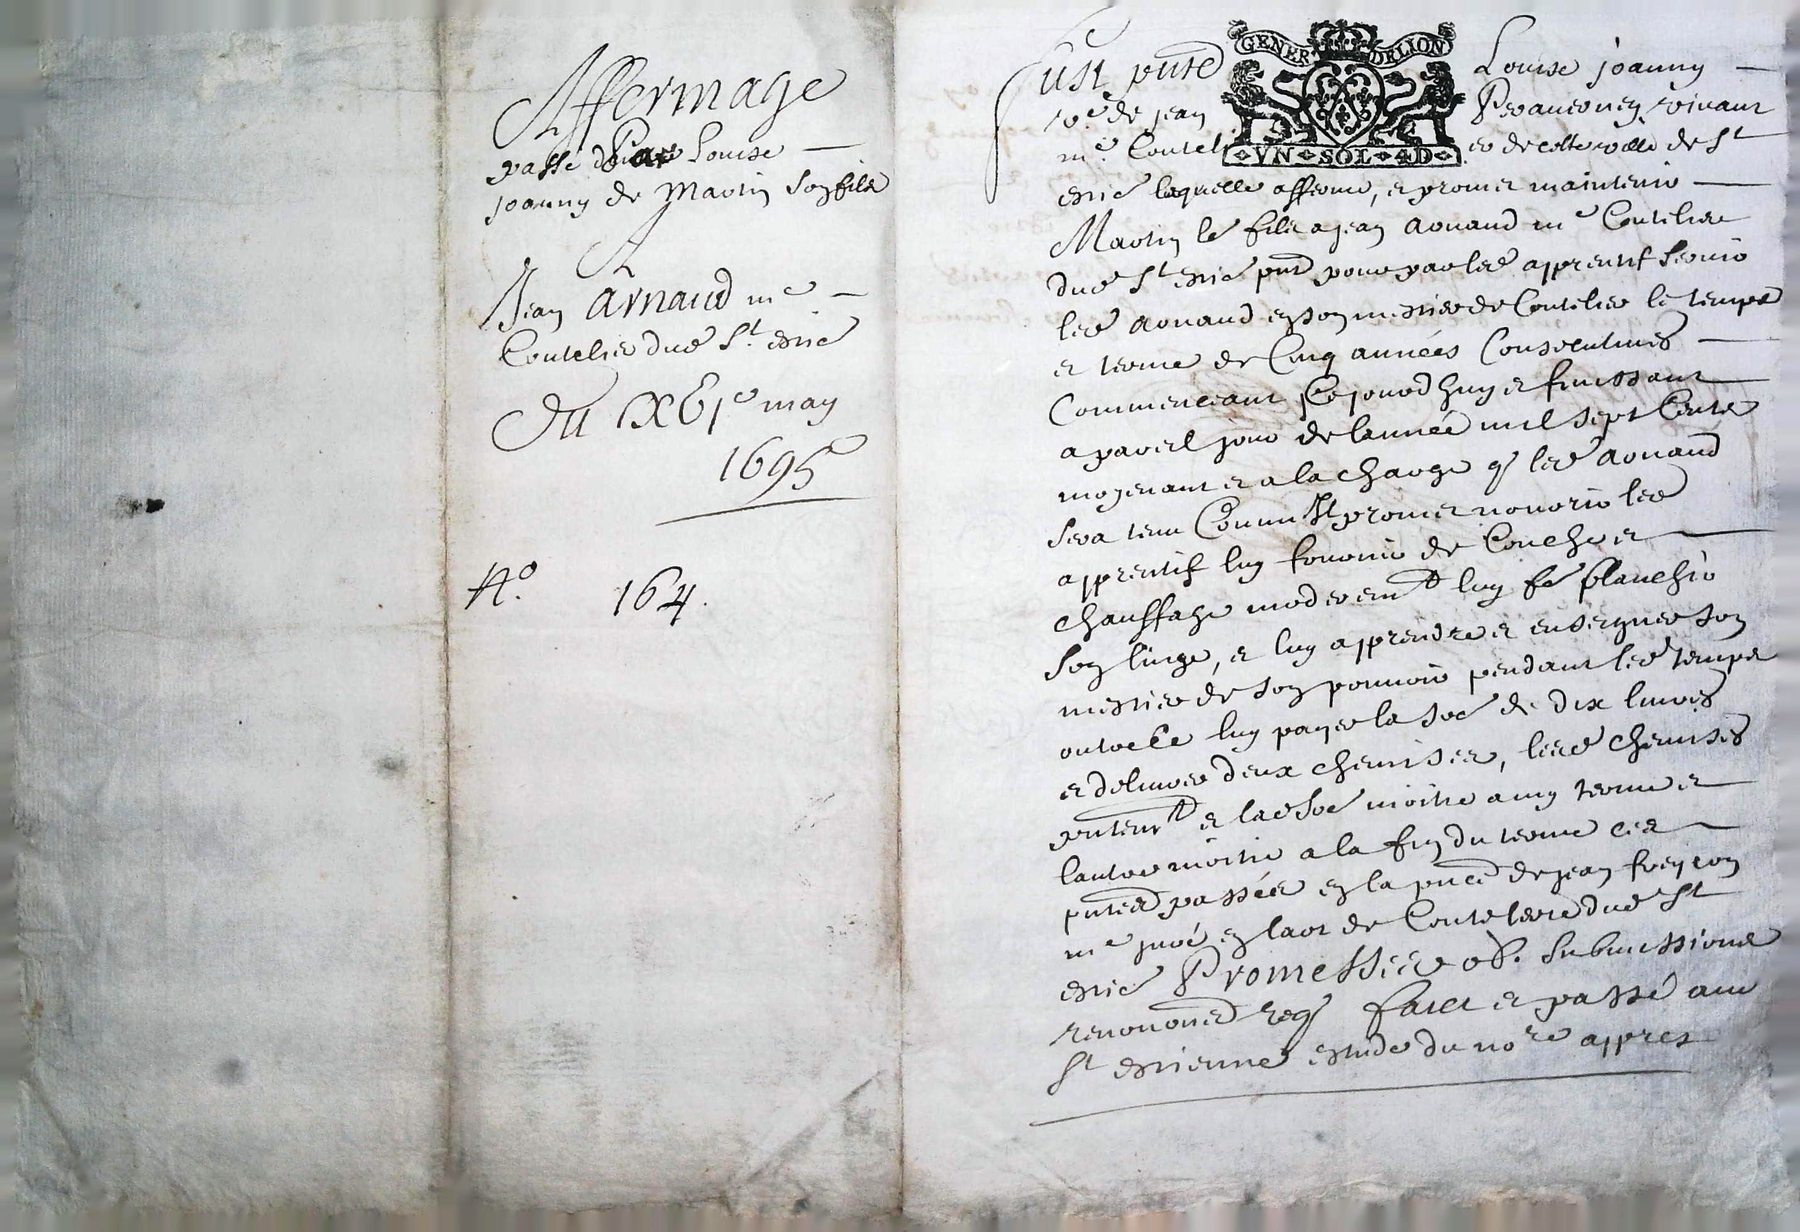 Affermage
passé par Louise
joanny de Martin son fils
A
Jean Arnaud me
Coutelier dud St Estie
Du XXVIe may
1695
No. 164.
GENER DELION
VN SOL 4D
Fust pnte Louise joanny
ve de jean vivant
me Coutelier de cette ville de St
Estie laquelle afferme, et promet maintenir
Martin le fils a jean Arnaud me Coutelier
dud St Estie pnt pour par led apprentif servir
led Arnaud en son mestier de Coutelier le temps
et terme de Cinq années Consecutives
Commenceant Ce jourdhuy et finissant
a pareil jour de lannée mil sept Cents
moyenant et a la charge q led Arnaud
sera tenu Comm Il promet nourrir led
apprentif luy fournir de Coucher
chauffage moderemt luy fe blanchir
son linge, et luy apprendre et enseigner son
mestier de son pouvoir pendant led temps
outre Ce luy payer la soe de dix livres
et delivrer deux chemises, lesd chemises
pntemt et lad soe moitie a my terme et
lautre moitie a la fin du terme ces
pntes passées en la pnce de jean
me juré en lart de Coutelerie dud St
Estie Promesses ob. submissions
renoned req faict et passé aud
St Estienne estude du nore appres